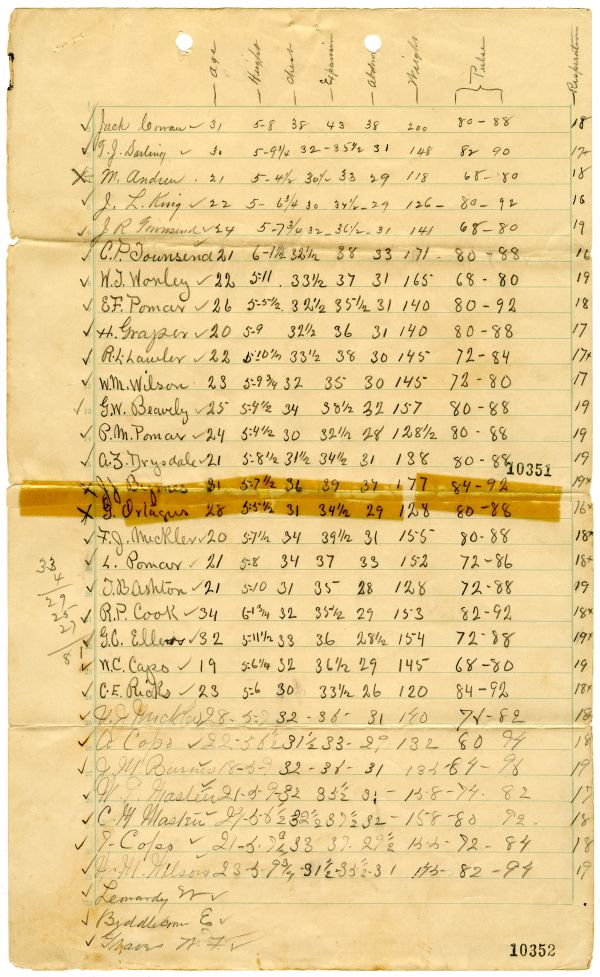 Age Height Chest Expansion Abdom Weight Pulse Respiration
Jack Cowan 31 5-8 38 43 38 200 80-88 18
T. J. Darling 31 5-9 3/4 32-35 1/2 31 148 82 90 17+
M. Andreu 21 5-4 1/2 30 1/2 33 29 118 68-80 18
J. L. King 22 5-6 3/4 30 34 1/2-29 126- 80-92 16
J R Townsend 24 5-7 3/4 32-36 1/2-31 141 68-80 19
C.P. Townsend 21 6-1 1/2 32 1/2 38 33 171. 80-88 16
W.T. Worley 22 5-11 33 1/2 37 31 165 68-80 19
E.F. Pomar 26 5-5 1/2 32 1/2 35 1/2 31 140 80-92 18
H. Graper 20 5-9 32 1/2 36 31 140 80-88 17
R.L. Lawler 22 5-10 1/2 33 1/2 38 30 145 72-84 17+
W.M. Wilson 23 5-9 3/4 32 35 30 145 72-80 17
G.W. Beavely 25 5-9 1/2 34 38 1/2 32 157 80-88 19
P.M. Pomar 24 5-4 1/2 30 32 1/2 28 128 1/2 80-88 19
A.Z. Drysdale 21 5-8 1/2 31 1/2 34 1/2 31 138 80-88 19
10351
J.J. Byrnes 31 5-7 1/2 36 39 37 177 84-92 19+
G. Orlagus 28 5-5 1/2 31 34 1/2 29 128 80-88 16+
F.J. Mickler 20 5-7 1/2 34 39 1/2 31 155 80-88 18+
L. Pomar 21 5-8 34 37 33 152 72-86 18+
T.B. Ashton 21 5-10 31 35 28 128 72-88 19
R.P. Cook 34 6-1 3/4 32 35 1/2 29 153 82-92 18+
G.C. Ellers 32 5-11 1/2 33 36 28 1/2 154 72-88 19+
W.C. Capo 19 5-6 1/4 32 36 1/2 29 145 68-80 19
C.E. Rick 23 5-6 30 33 1/2 26 120 84-92 18+
33
4
29
25
27
81
J. Mickler 28-5-7 32-36-31 140 74-82 18
A. Capo 22-5-6 1/2 31 1/2 33-29 132 80 94 18
J. M. 18-5-9 32-36-31 84-96 19
Master 21-5-9-32 35 1/2 31-158-74. 82 17
C. Master 5-6 1/2 32 1/2 37 1/2 32-158-80 92. 18
J. Capo 21-5-7 33 37 29 1/2 72-84 18
H. M. Wilson 23-5-9 3/4-31 1/2-35 1/2-31 82-94 19
Leonardy W
Biddlecom E
Graves W. F.
10352